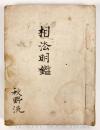 相法明鑑
秋野洗